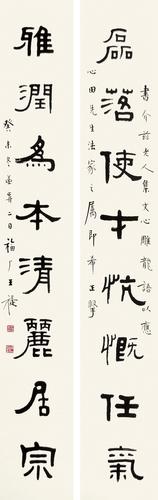 磊落使才忼慨任氣
書介兹老人集文心雕龍語以應
心田先生法家之屬即希正
雅潤為本清麗居宗
癸未冬二日福厂王禔